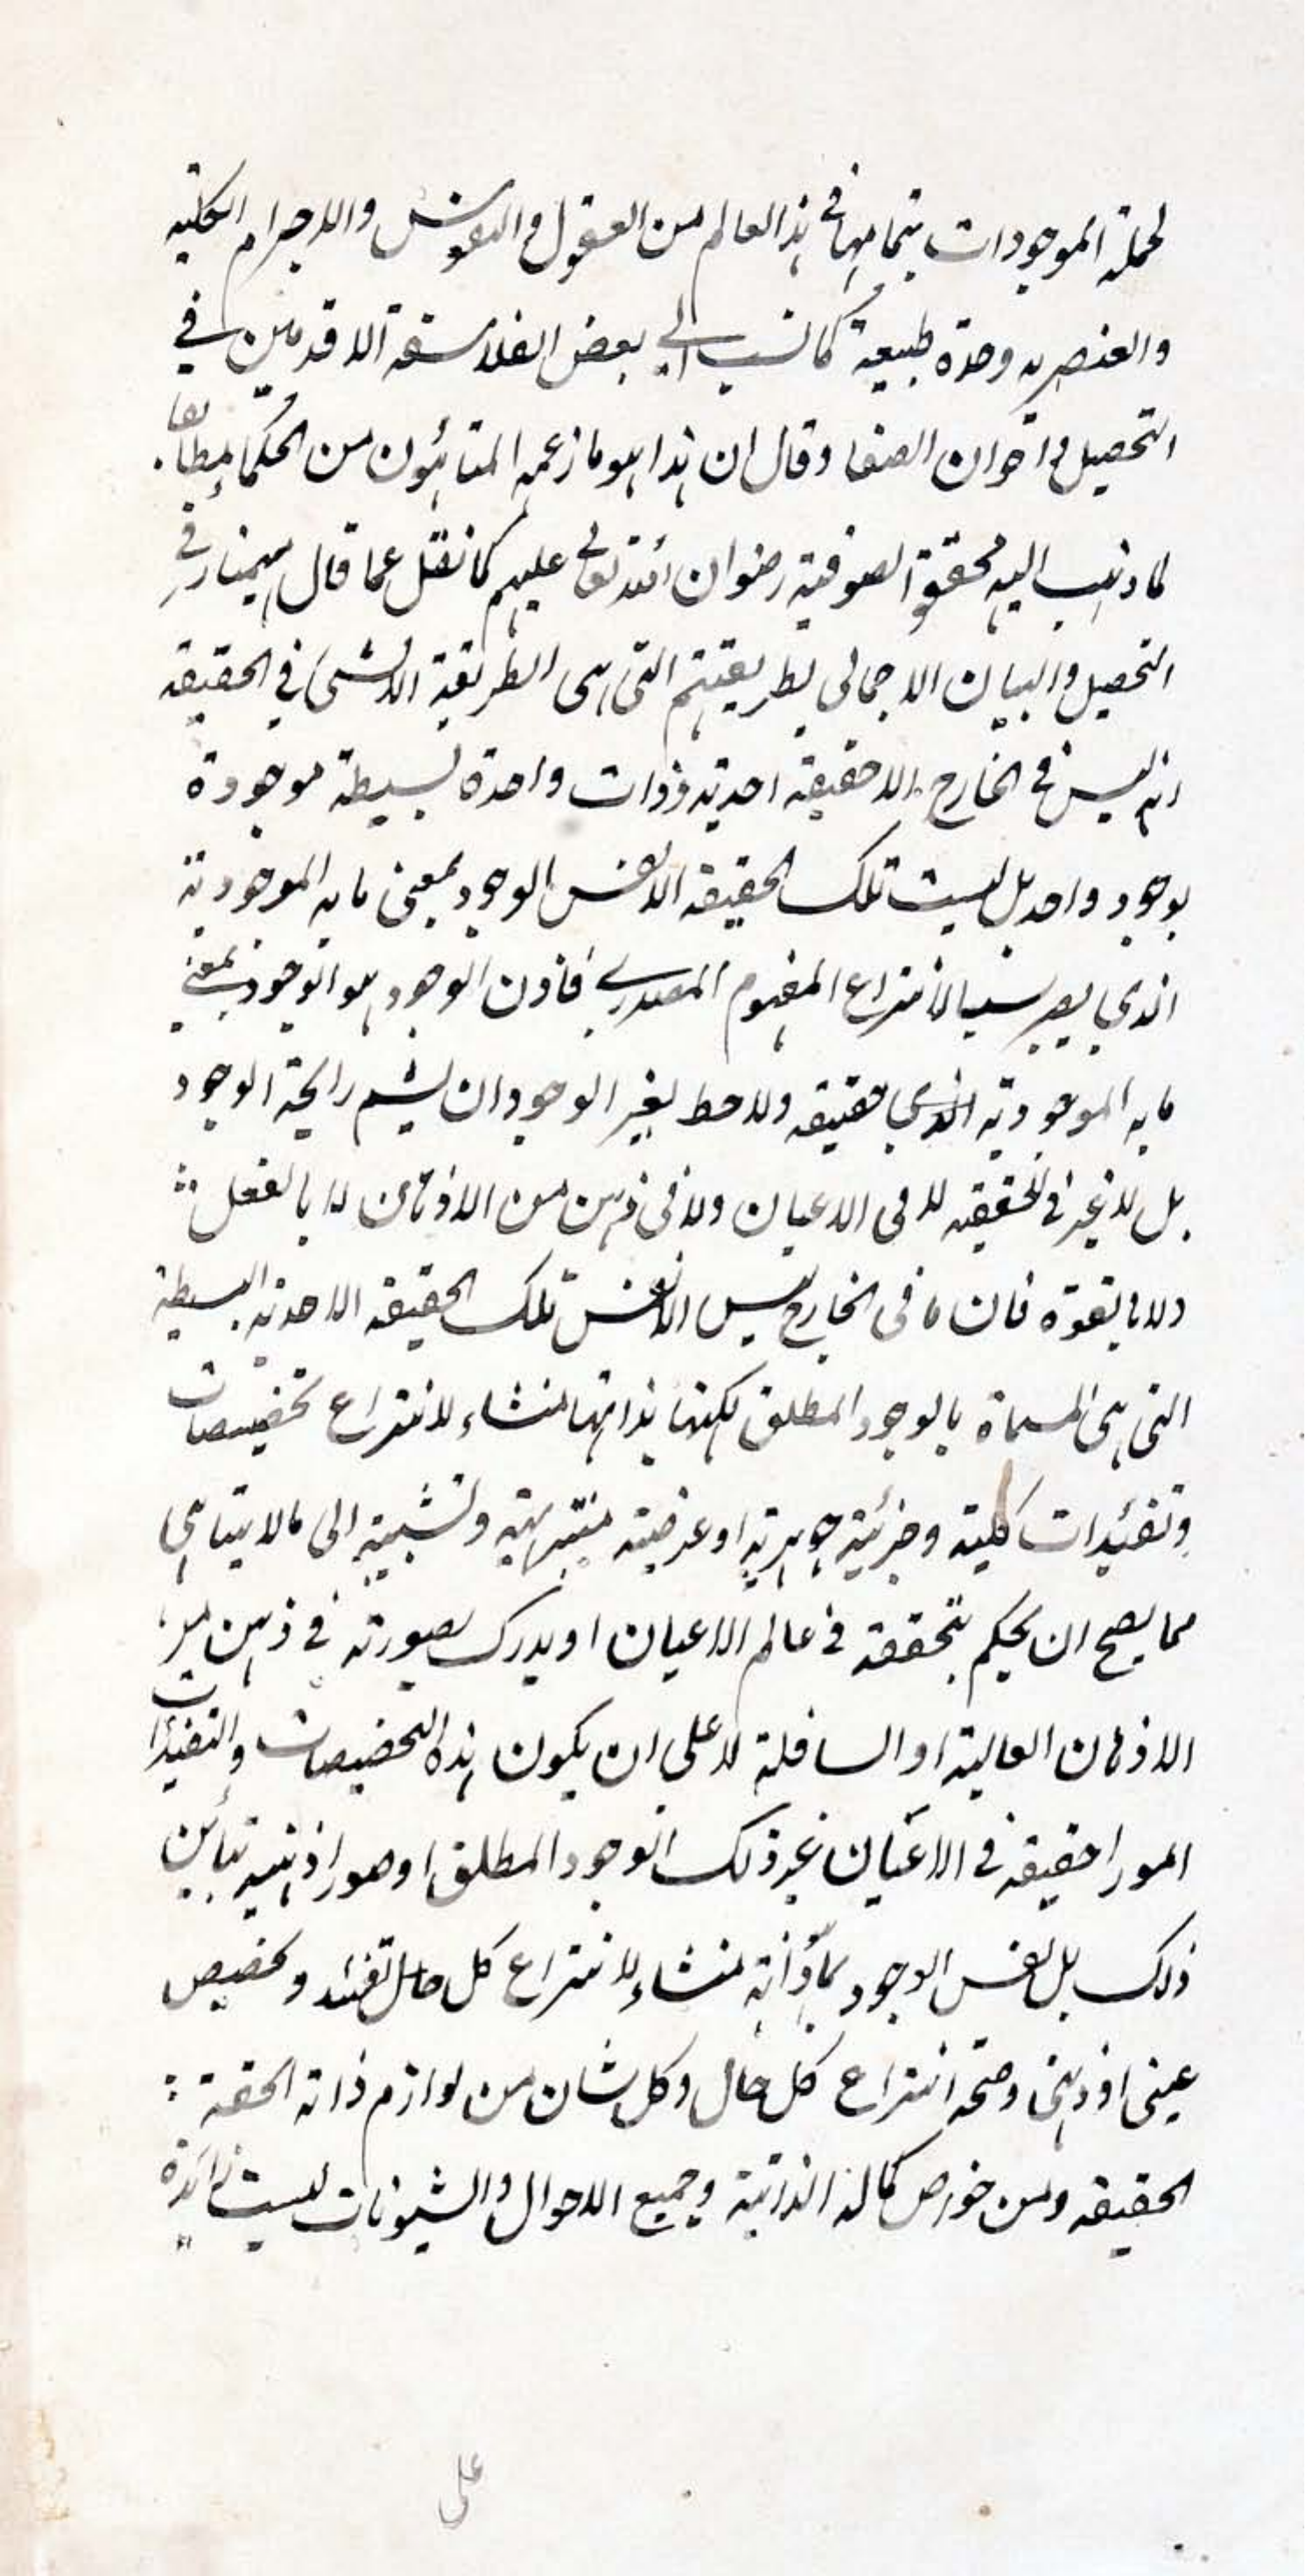 لجملة الموجودات بتمامها في هذا العالم من العقول والنفوس والاجرام الفلكية
والعنصرية وحدة طبيعية كما نسب الي بعض الفلاسفة الاقدمين في
التحصيل واخوان الصفا وقال ان هذا هو ما زعمه المتألهون من الحكما مطابقا
لما ذهب اليه محققو الصوفية رضوان الله تعالي عليهم كما نقل عما قال بهمنيار في
التحصيل والبيان الاجمالى بطريقتهم التى هى الطريقة الاشئ في الحقيقة
انه ليس في الخارج الا حقيقة احدية وذات واحدة بسيطة موجودة
بوجود واحد بل ليست تلك الحقيقة الا نفس الوجود بمعنى ما به الموجودية
الذي يصير سببا لانتزاع المفهوم المصدري فاذن الوجود هو الوجود بمعنى
ما به الموجودية الذي حقيقة ولا حظ لغير الوجود ان يشم رايحة الوجود
بل لا غير في الحقيقة لا فى الاعيان ولا فى ذهن من الاذهان لا بالفعل
ولا بالقوة فان ما فى الخارج ليس الا نفس تلك الحقيقة الاحدية البسيطة
التى هى المسماة بالوجود المطلق لكنها بذاتها منشاء لانتزاع تخصيصات
وتقئيدات كلية وجزئية جوهرية او عرضية تنزيهية وتشبيهية الى مالا يتناهى
مما يصح ان يحكم بتحققه في عالم الاعيان او يدرك بصورته في ذهن من
الاذهان العالية او السافلة لا على ان يكون هذه التخصيصات والتقئيدات
امورا حقيقة في الاعيان غير ذلك الوجود المطلق او صورا ذهنية تبائن
ذلك بل نفس الوجود بذاته منشاء لانتزاع كل حال تقئد وتخصيص
عينى او ذهنى وصحة انتزاع كل حال وكل شان من لوازم ذاته الحقة
الحقيقة ومن خواص كماله الذاتية وجميع الاحوال والشيونات ليست زائدة
على